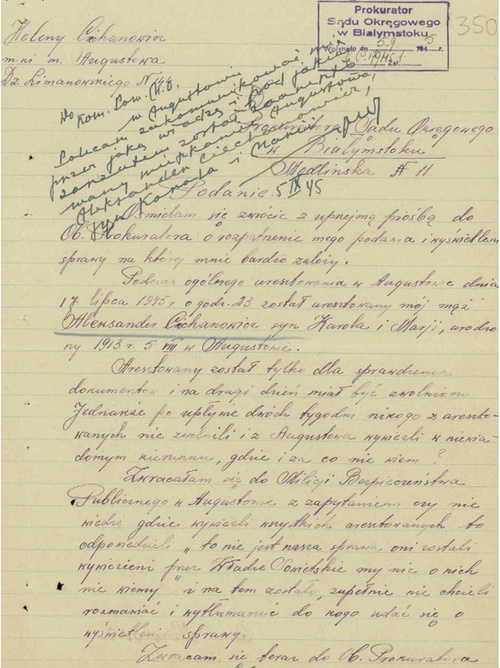 Prokurator
Sądu Okręgowego
w Białymstoku
350
Heleny Cichanowicz
m-ki m. Augustowa
Do Kom. Pow. M.O.
w Augustowie
Polecam zakomunikować mi
przez jaką władzę i pod jakim
zarzutem został
wany mieszkaniec Augustowa,
Aleksander Ciechanowicz,
syn Karola i Marii
5 IX 45
Prokuratora Sądu Okręgowego
w Białymstoku
Mydlińska # 11
Podanie
Ośmielam się zwrócić z uprzejmą prośbą do
Ob. Prokuratora o rozpatrzenie mego podania i wyświetlenie
sprawy na której mnie bardzo zależy.
Podczas ogólnego aresztowania w Augustowie dnia
17 lipca 1945 r o godz. 23 został aresztowany mój mąż
Aleksander Cichanowicz syn Karola i Marji, urodzo
ny 1913 r. 5 VIII w Augustowie.
Aresztowany został tylko dla sprawdzenia
dokumentów i na drugi dzień miał być zwolniony
Jednakże po upływie dwóch tygodni nikogo z areszto-
wanych nie zwolnili i z Augustowa wywieźli w niewia-
domym kierunku, gdzie i za co nie wiem?
Zwracałam się do Milicji Bezpieczeństwa
Publicznego w Augustowie z zapytaniem czy nie
wiedzą gdzie wywieźli wszystkich aresztowanych to
odpowiedzieli "to nie jest nasza sprawa oni zostali
wywiezieni przez Władze Sowietskie my nic o nich
nie wiemy" i na tem zostało, zupełnie nie chcieli
rozmawiać i wytłumaczyć do kogo udać się o
wyświetlenie sprawy.
Zwracam się teraz do Ob. Prokuratora